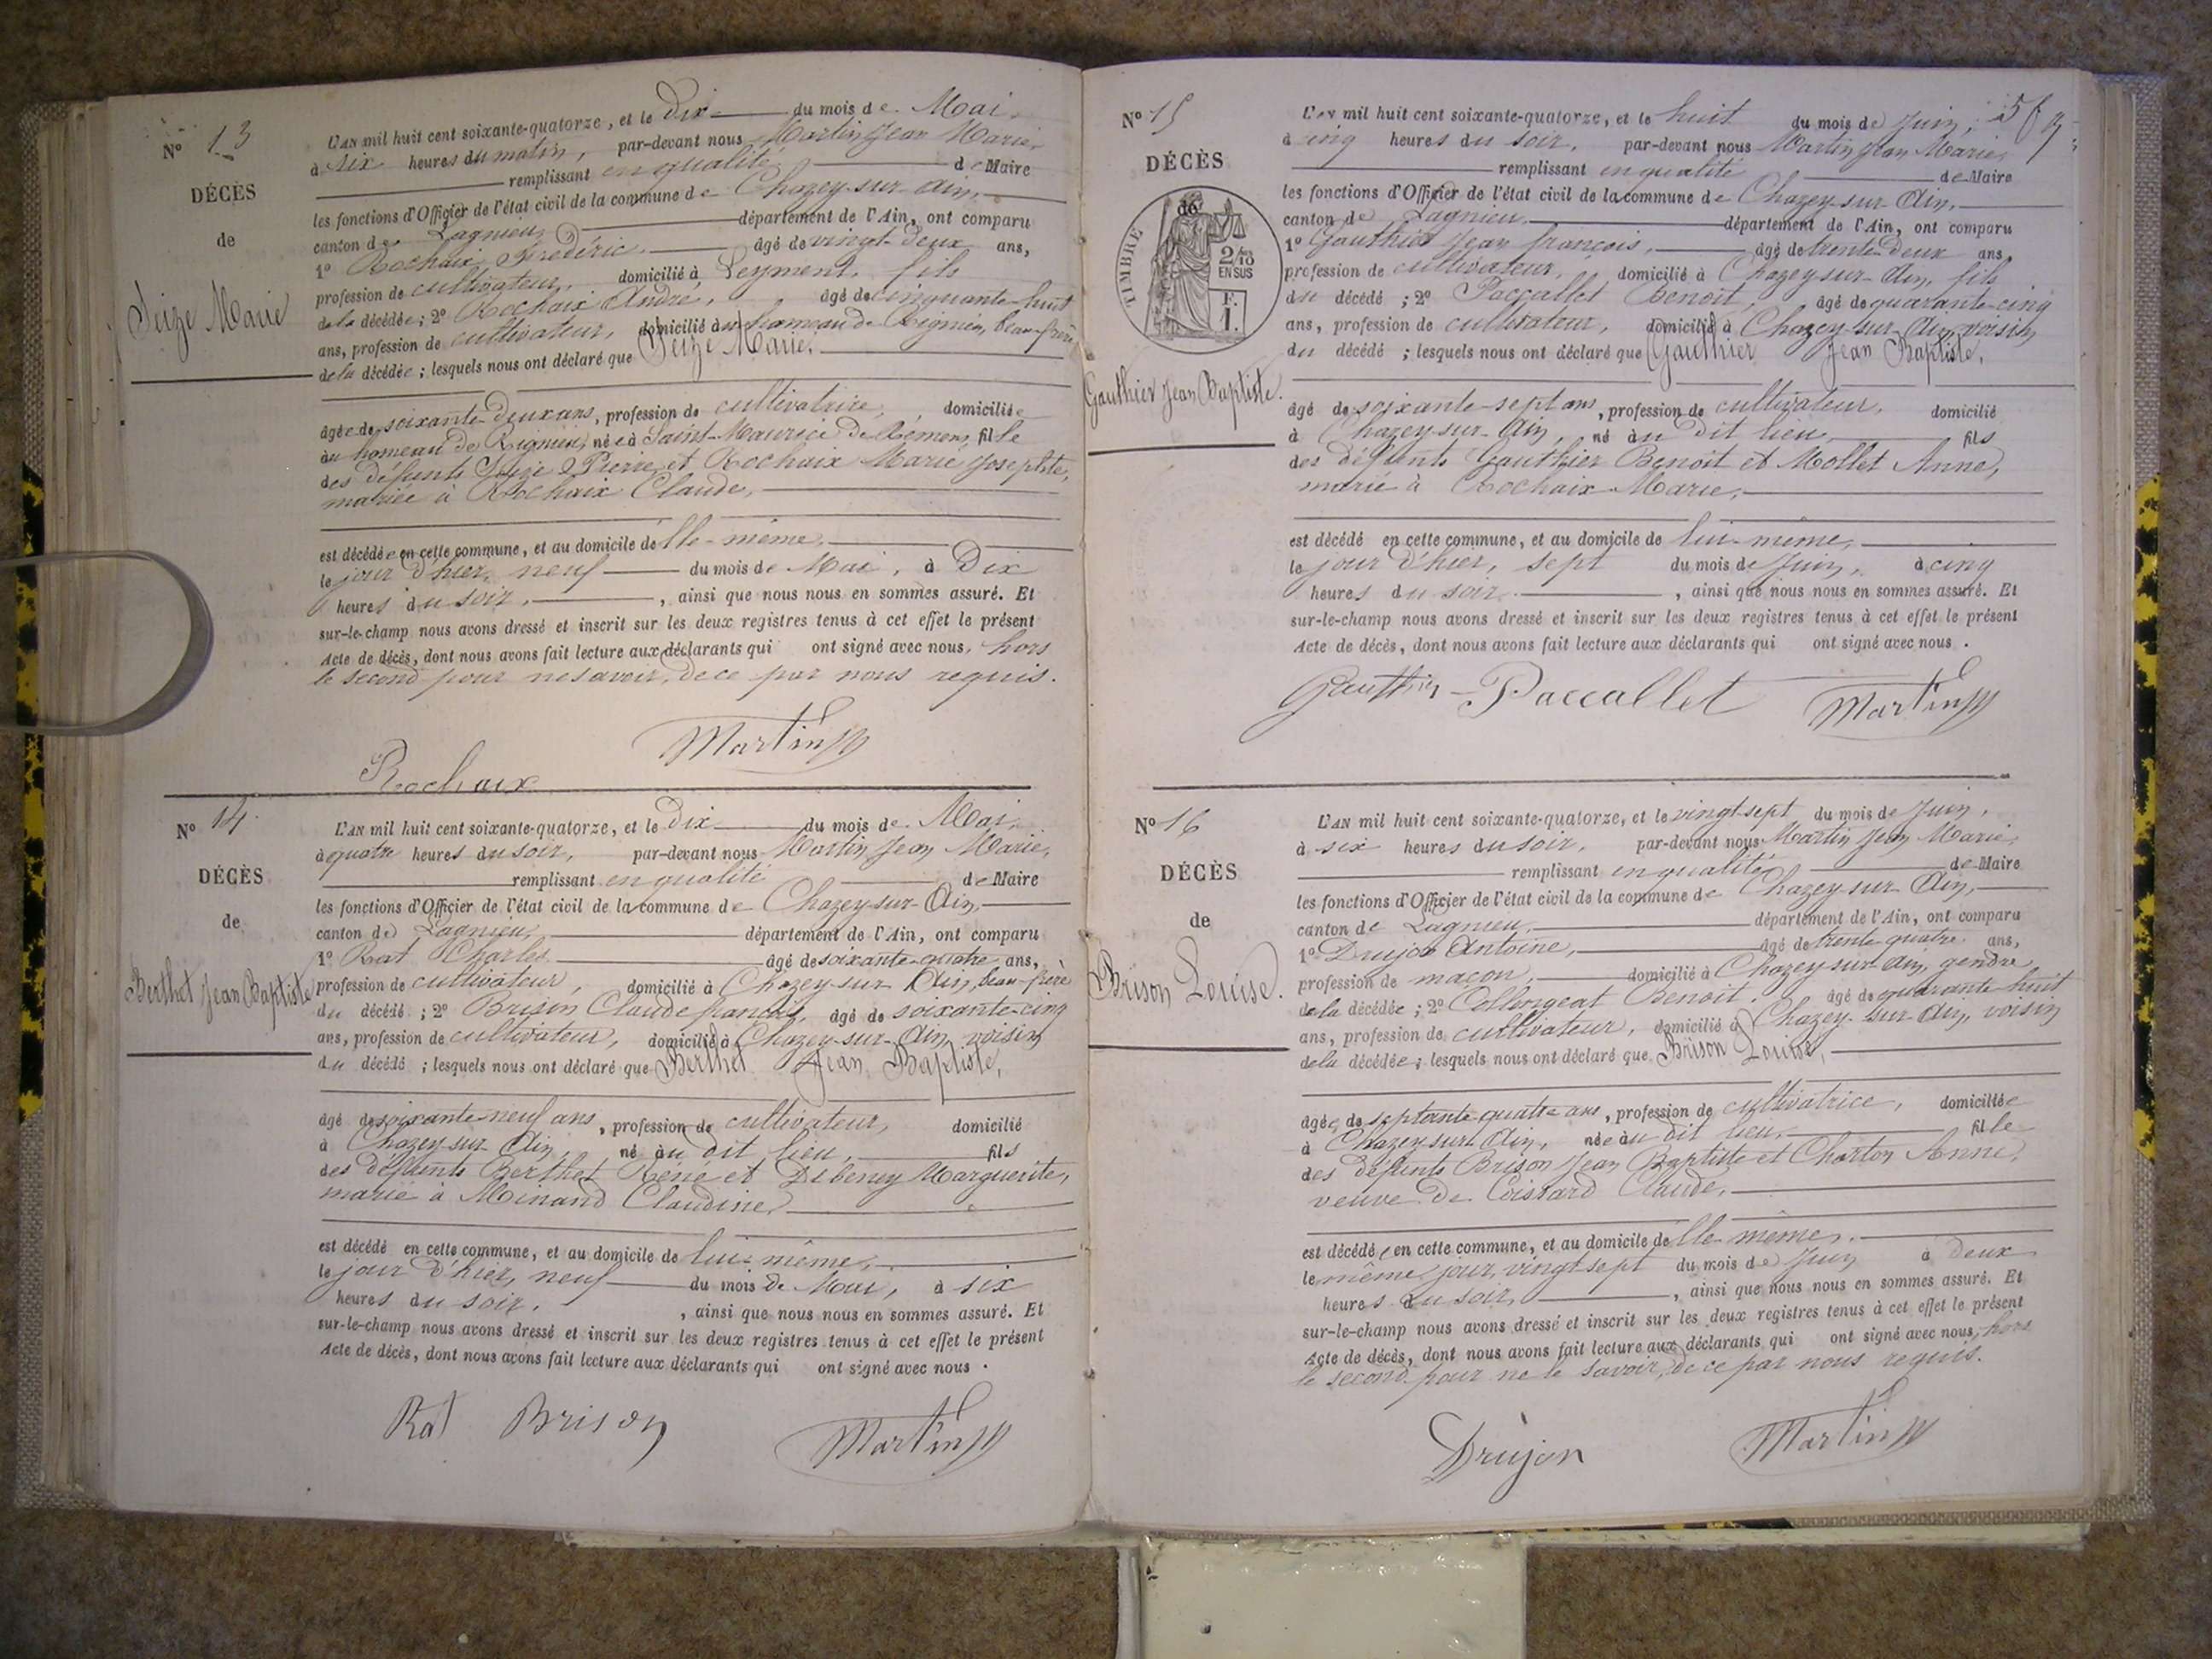 N° 13
DÉCÈS
de
Seize Marie
L'AN mil huit cent soixante-quatorze, et le Dix du mois de Mai,
à six heures du matin, par-devant nous Martin Jean Marie,
remplissant en qualité de Maire
les fonctions d'Officier de l'état civil de la commune de Chazey-sur-Ain,
canton de Lagnieu, département de l'Ain, ont comparu
1° Rochaix Frédéric, âgé de vingt-deux ans,
profession de cultivateur, domicilié à Leyment, fils
de la décédée ; 2° Rochaix André, âgé de cinquante-huit
ans, profession de cultivateur, domicilié au hameau de Rignieu, beau-frère
de la décédée ; lesquels nous ont déclaré que Seize Marie,
âgée de soixante-deux ans, profession de cultivatrice, domiciliée
au hameau de Rignieu, née à Saint-Maurice de Rémens, fille
des défunts Seize Pierre et Rochaix Marie Josephte,
mariée à Rochaix Claude,
est décédée en cette commune, et au domicile de lle-même,
le jour d'hier, neuf du mois de Mai, à Dix
heures du soir, , ainsi que nous nous en sommes assuré. Et
sur-le-champ nous avons dressé et inscrit sur les deux registres tenus à cet effet le présent
Acte de décès, dont nous avons fait lecture aux déclarants qui ont signé avec nous, hors
le second pour ne savoir, de ce par nous requis.
Martin
Rochaix
N° 14
DÉCÈS
de
Berthet Jean Baptiste
L'AN mil huit cent soixante-quatorze, et le dix du mois de Mai,
à quatre heures du soir, par-devant nous Martin Jean Marie,
remplissant en qualité de Maire
les fonctions d'Officier de l'état civil de la commune de Chazey-sur-Ain,
canton de Lagnieu, département de l'Ain, ont comparu
1° Rat Charles âgé de soixante-quatre ans,
profession de cultivateur, domicilié à Chazey-sur-Ain, beau-frère
du décédé ; 2° Brison Claude françois, âgé de soixante-cinq
ans, profession de cultivateur, domicilié à Chazey-sur-Ain, voisin
du décédé ; lesquels nous ont déclaré que Berthet Jean Baptiste,
âgé de soixante-neuf ans, profession de cultivateur, domicilié
à Chazey-sur-Ain, né au dit lieu, fils
des défunts Berthet Réné et Debeney Marguerite,
marié à Minand Claudine,
est décédé en cette commune, et au domicile de lui-même,
le jour d'hier, neuf du mois de Mai, à six
heures du soir, , ainsi que nous nous en sommes assuré. Et
sur-le-champ nous avons dressé et inscrit sur les deux registres tenus à cet effet le présent
Acte de décès, dont nous avons fait lecture aux déclarants qui ont signé avec nous .
Rat Brison Martin
N° 15
DÉCÈS
de
TIMBRE
2/10
EN SUS
F.
1.
Gauthier Jean Baptiste.
L'AN mil huit cent soixante-quatorze, et le huit du mois de Juin,
à cinq heures du soir, par-devant nous Martin Jean Marie,
remplissant en qualité de Maire
les fonctions d'Officier de l'état civil de la commune de Chazey-sur-Ain,
canton de Lagnieu, département de l'Ain, ont comparu
1° Gauthier Jean françois, âgé de trente-deux ans
profession de cultivateur, domicilié à Chazey-sur-Ain, fils
du décédé ; 2° Paccallet Benoit, âgé de quarante-cinq
ans, profession de cultivateur, domicilié à Chazey-sur-Ain, voisin
du décédé ; lesquels nous ont déclaré que Gauthier Jean Baptiste,
âgé de soixante-sept ans, profession de cultivateur, domicilié
à Chazey-sur-Ain, né au dit lieu, fils
des défunts Gauthier Benoit et Mollet Anne,
marié à Rochaix Marie,
est décédé en cette commune, et au domicile de lui-même,
le jour d'hier, sept du mois de Juin, à cinq
heures du soir. , ainsi que nous nous en sommes assuré. Et
sur-le-champ nous avons dressé et inscrit sur les deux registres tenus à cet effet le présent
Acte de décès, dont nous avons fait lecture aux déclarants qui ont signé avec nous .
Gauthier Paccallet Martin
N° 16
DÉCÈS
de
Brison Louise.
L'AN mil huit cent soixante-quatorze, et le vingt-sept du mois de Juin,
à six heures du soir, par-devant nous Martin Jean Marie,
remplissant en qualité de Maire
les fonctions d'Officier de l'état civil de la commune de Chazey-sur-Ain,
canton de Lagnieu, département de l'Ain, ont comparu
1° Drujon Antoine, âgé de trente-quatre ans,
profession de maçon, domicilié à Chazey-sur-Ain, gendre
de la décédée ; 2° Collongeat Benoit, âgé de quarante-huit
ans, profession de cultivateur, domicilié à Chazey-sur-Ain, voisin
de la décédée ; lesquels nous ont déclaré que Brison Louise,
âgée de septante-quatre ans, profession de cultivatrice, domiciliée
à Chazey-sur-Ain, née au dit lieu, fille
des défunts Brison Jean Baptiste et Charton Anne,
veuve de Coissard Claude,
est décédée en cette commune, et au domicile de lle-même,
le même jour, vingt-sept du mois de Juin à deux
heures du soir, , ainsi que nous nous en sommes assuré. Et
sur-le-champ nous avons dressé et inscrit sur les deux registres tenus à cet effet le présent
Acte de décès, dont nous avons fait lecture aux déclarants qui ont signé avec nous, hors
le second pour ne le savoir, de ce par nous requis.
Drujon Martin